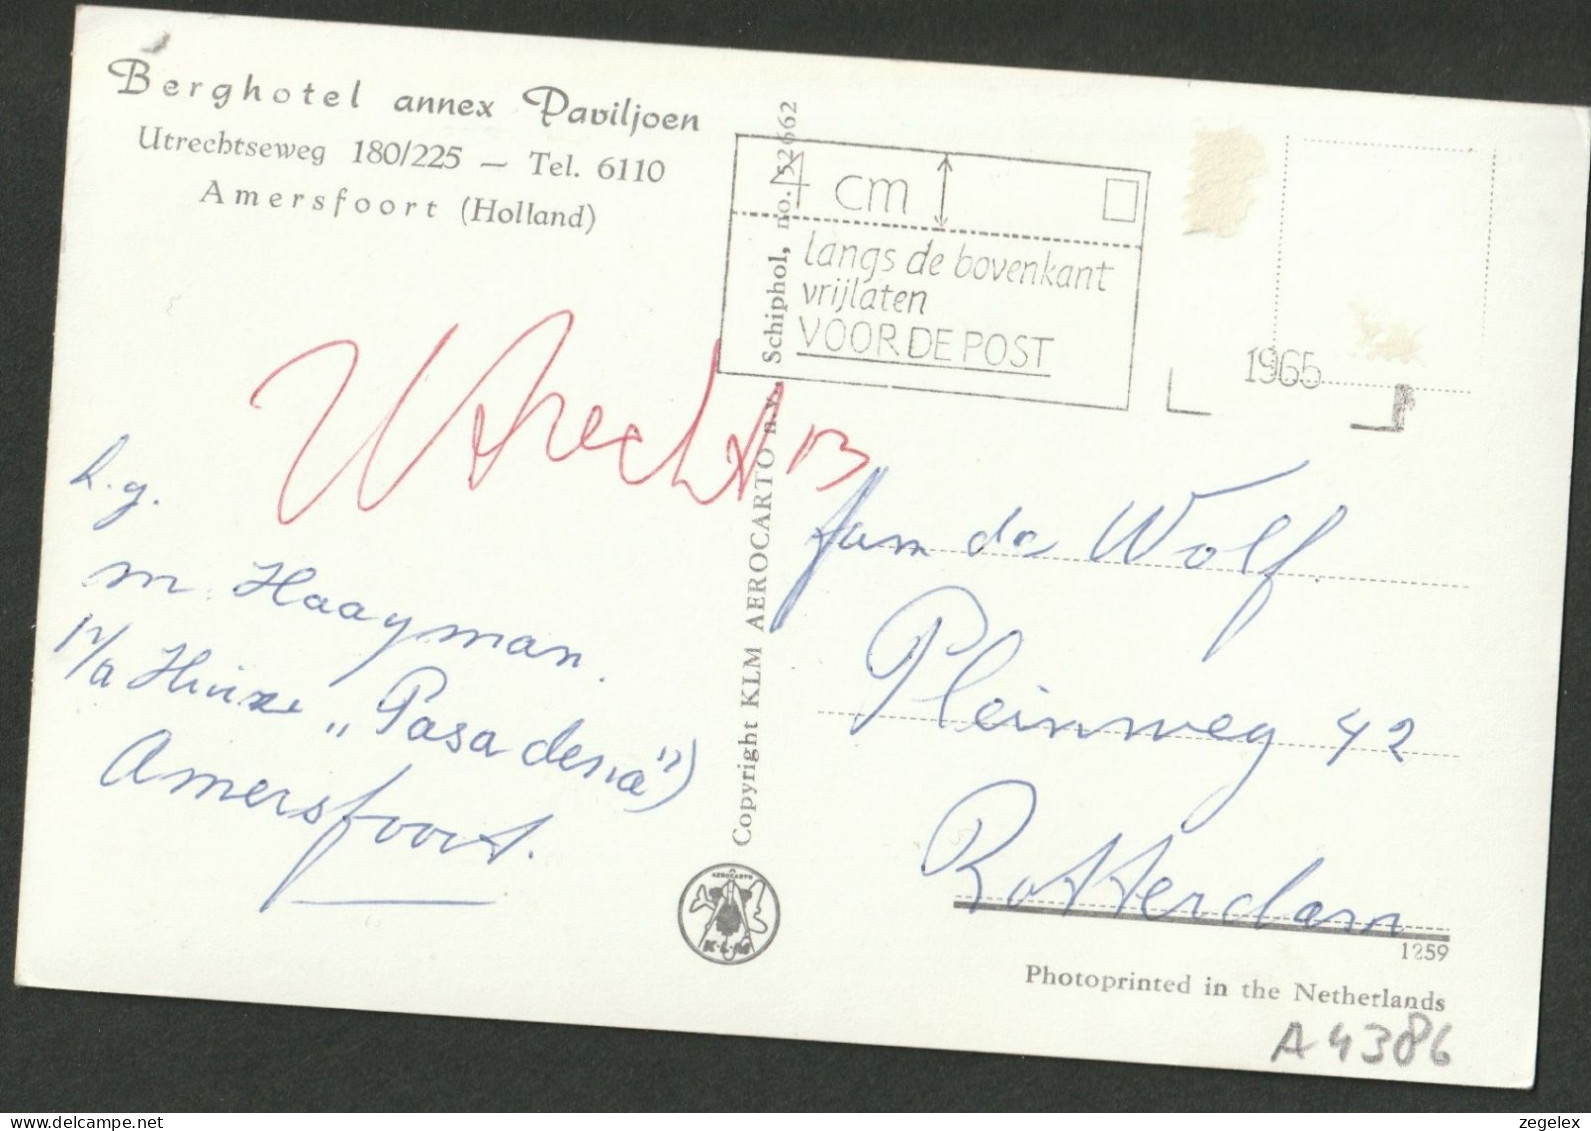 Berghotel annex Paviljoen
Utrechtseweg 180/225 — Tel. 6110
Amersfoort (Holland)
4 cm
langs de bovenkant
vrijlaten
VOOR DE POST
1965
Utrecht 13
h.g.
m. Haayman.
"Pasadena")
Amersfoort.
Copyright KLM AEROCARTO n.v., Schiphol, no. 52662
Jan de Wolf.
Pleinweg 42
Rotterdam
AEROCARTO
K·L·M
1259
Photoprinted in the Netherlands
A 4386
zegelex